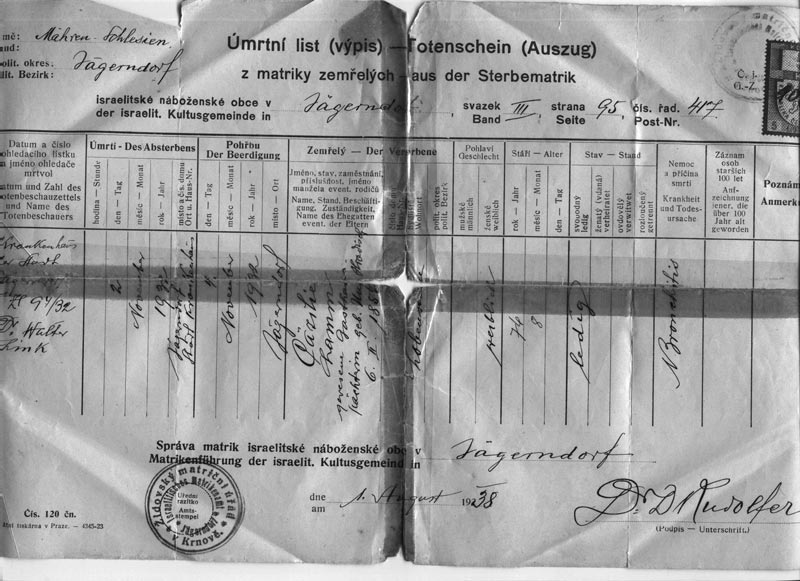 mě: Mähren-Schlesien
and:
polit. okres: Jägerndorf
olit. Bezirk:
Úmrtní list (výpis) — Totenschein (Auszug)
z matriky zemřelých — aus der Sterbematrik
israelitské náboženské obce v
der israelit. Kultusgemeinde in Jägerndorf svazek Band III, strana Seite 95, čís. řad. Post-Nr. 417
Č. j.
G.-Z.
Datum a číslo
ohledacího lístku
a jméno ohledače
mrtvol
atum und Zahl des
otenbeschauzettels
und Name des
Totenbeschauers
Úmrtí - Des Absterbens
hodina — Stunde
den — Tag
měsíc — Monat
rok — Jahr
místo a čís. domu
Ort u. Haus-Nr.
Pohřbu
Der Beerdigung
den — Tag
měsíc — Monat
rok — Jahr
místo — Ort
Zemřelý — Der Verstorbene
Jméno, stav, zaměstnání,
příslušnost, jméno
manžela event. rodičů
Name, Stand, Beschäfti-
gung, Zuständigkeit,
Name des Ehegatten
event. der Eltern
polit. okres
polit. Bezirk
Pohlaví
Geschlecht
mužské
männlich
ženské
weiblich
Stáří - Alter
rok — Jahr
měsíc — Monat
den — Tag
Stav — Stand
svobodný
ledig
ženatý (vdaná)
verheiratet
ovdovělý
verwitwet
rozloučený
getrennt
Nemoc
a příčina
smrti
Krankheit
und Todes-
ursache
Záznam
osob
starších
100 let
Anf-
zeichnung
jener, die
über 100
Jahr alt
geworden
Poznám
Anmerk
Krankenhaus
der Stadt
Zl 94/32
Dr. Walter
Link
2
November
1932
Jägerndorf
Städt. Krankenhaus
4
November
1932
Jägerndorf
Cäcilie
Hamm
gewesene Gasthaus
pächterin geb.
weiblich
74
8
ledig
Bronchitis
Správa matrik israelitské náboženské obce v
Matrikenführung der israelit. Kultusgemeinde in Jägerndorf
dne
am 1. August 1938
Dr D Rudolfer
(Podpis — Unterschrift.)
Židovský matriční úřad
v Krnově
Israelitisches Matrikenamt
Jägerndorf
Úřední
razítko
Amts-
stempel
Čís. 120 čn.
tiskárna v Praze. — 4345-23